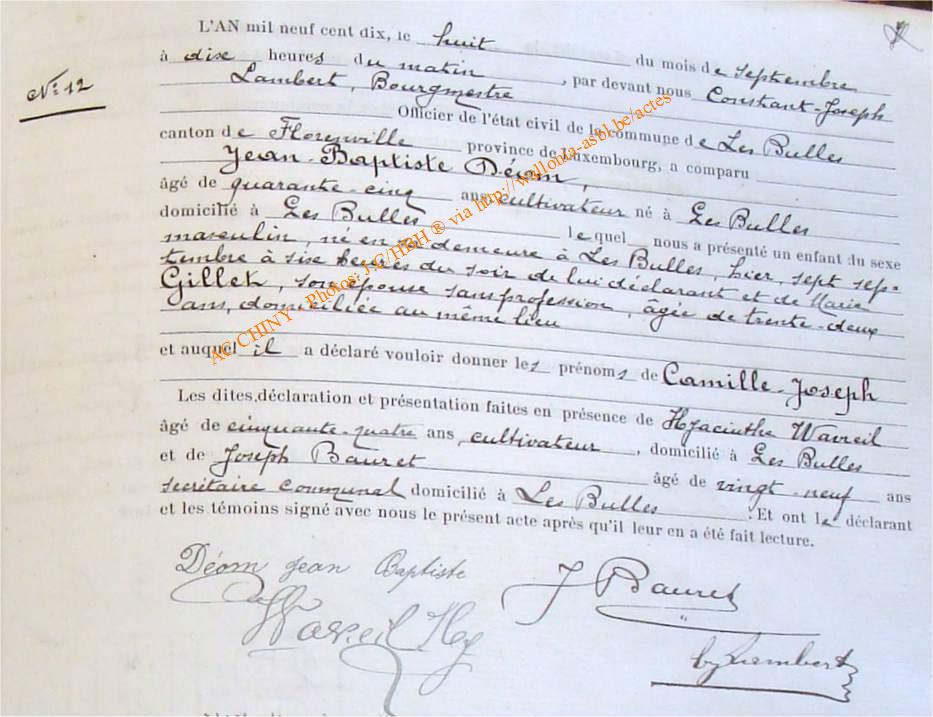 L'AN mil neuf cent dix, le huit du mois de septembre
N° 12
à dix heures du matin, par devant nous Constant-Joseph
Lambert, Bourgmestre
Officier de l'état civil de la commune de Les Bulles
canton de Florenville province de Luxembourg, a comparu
Jean-Baptiste Déom,
âgé de quarante-cinq ans, cultivateur né à Les Bulles
domicilié à Les Bulles lequel nous a présenté un enfant du sexe
masculin, né en sa demeure à Les Bulles, hier, sept sep-
tembre à six heures du soir de lui déclarant et de Marie
Gillet, son épouse sans profession, âgée de trente-deux
ans, domiciliée au même lieu
et auquel il a déclaré vouloir donner les prénoms de Camille-Joseph
Les dites déclaration et présentation faites en présence de Hyacinthe Wavreil
âgé de cinquante-quatre ans, cultivateur, domicilié à Les Bulles
et de Joseph Bauret âgé de vingt-neuf ans
secrétaire communal domicilié à Les Bulles. Et ont le déclarant
et les témoins signé avec nous le présent acte après qu'il leur en a été fait lecture.
Déom Jean Baptiste
J Bauret
Wavreil Hy
Lambert
AC CHINY - Photos: J.C/HBH ® via http://wallonia-asbl.be/actes